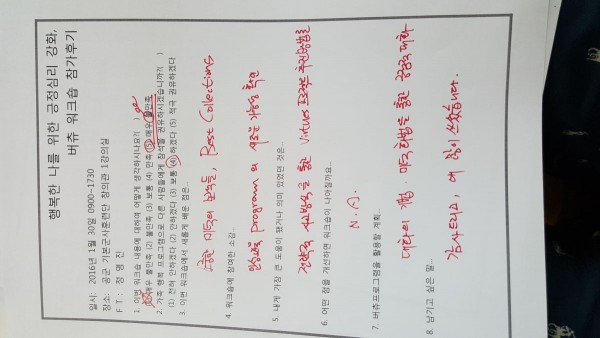 행복한 나를 위한 긍정심리 강화,
버츄 워크숍 참가후기
일시: 2016년 1월 30일 0900~1730
장소: 공군 기본군사훈련단 창의관 1강의실
F T : 정 명 진
1. 이번 워크숍 내용에 대하여 어떻게 생각하시나요?( )
(1)매우 불만족 (2) 불만족 (3) 보통 (4) 만족 (5) 매우 불만족
2. 가족 행복 프로그램으로 다른 사람들에게 참석을 권유하시겠습니까?( )
(1) 전혀 안하겠다 (2) 안하겠다 (3) 보통 (4) 하겠다 (5) 적극 권유하겠다
3. 이번 워크숍에서 새롭게 배운 점은...
미덕의 보석들, Best Collections
4. 워크숍에 참여한 소감...
인성교육 program의 새로운 가능성 확인
5. 내게 가장 큰 도움이 됐거나 의미 있었던 것은...
전략적 사고방식을 통한 Virtues 프로젝트 추진방법론
6. 어떤 점을 개선하면 워크숍이 나아질까요...
N.A.
7. 버츄프로그램을 활용할 계획...
대화의 개선. 미덕화법을 통한 긍정적 대화
8. 남기고 싶은 말...
감사드리고, 애 많이 쓰셨습니다.